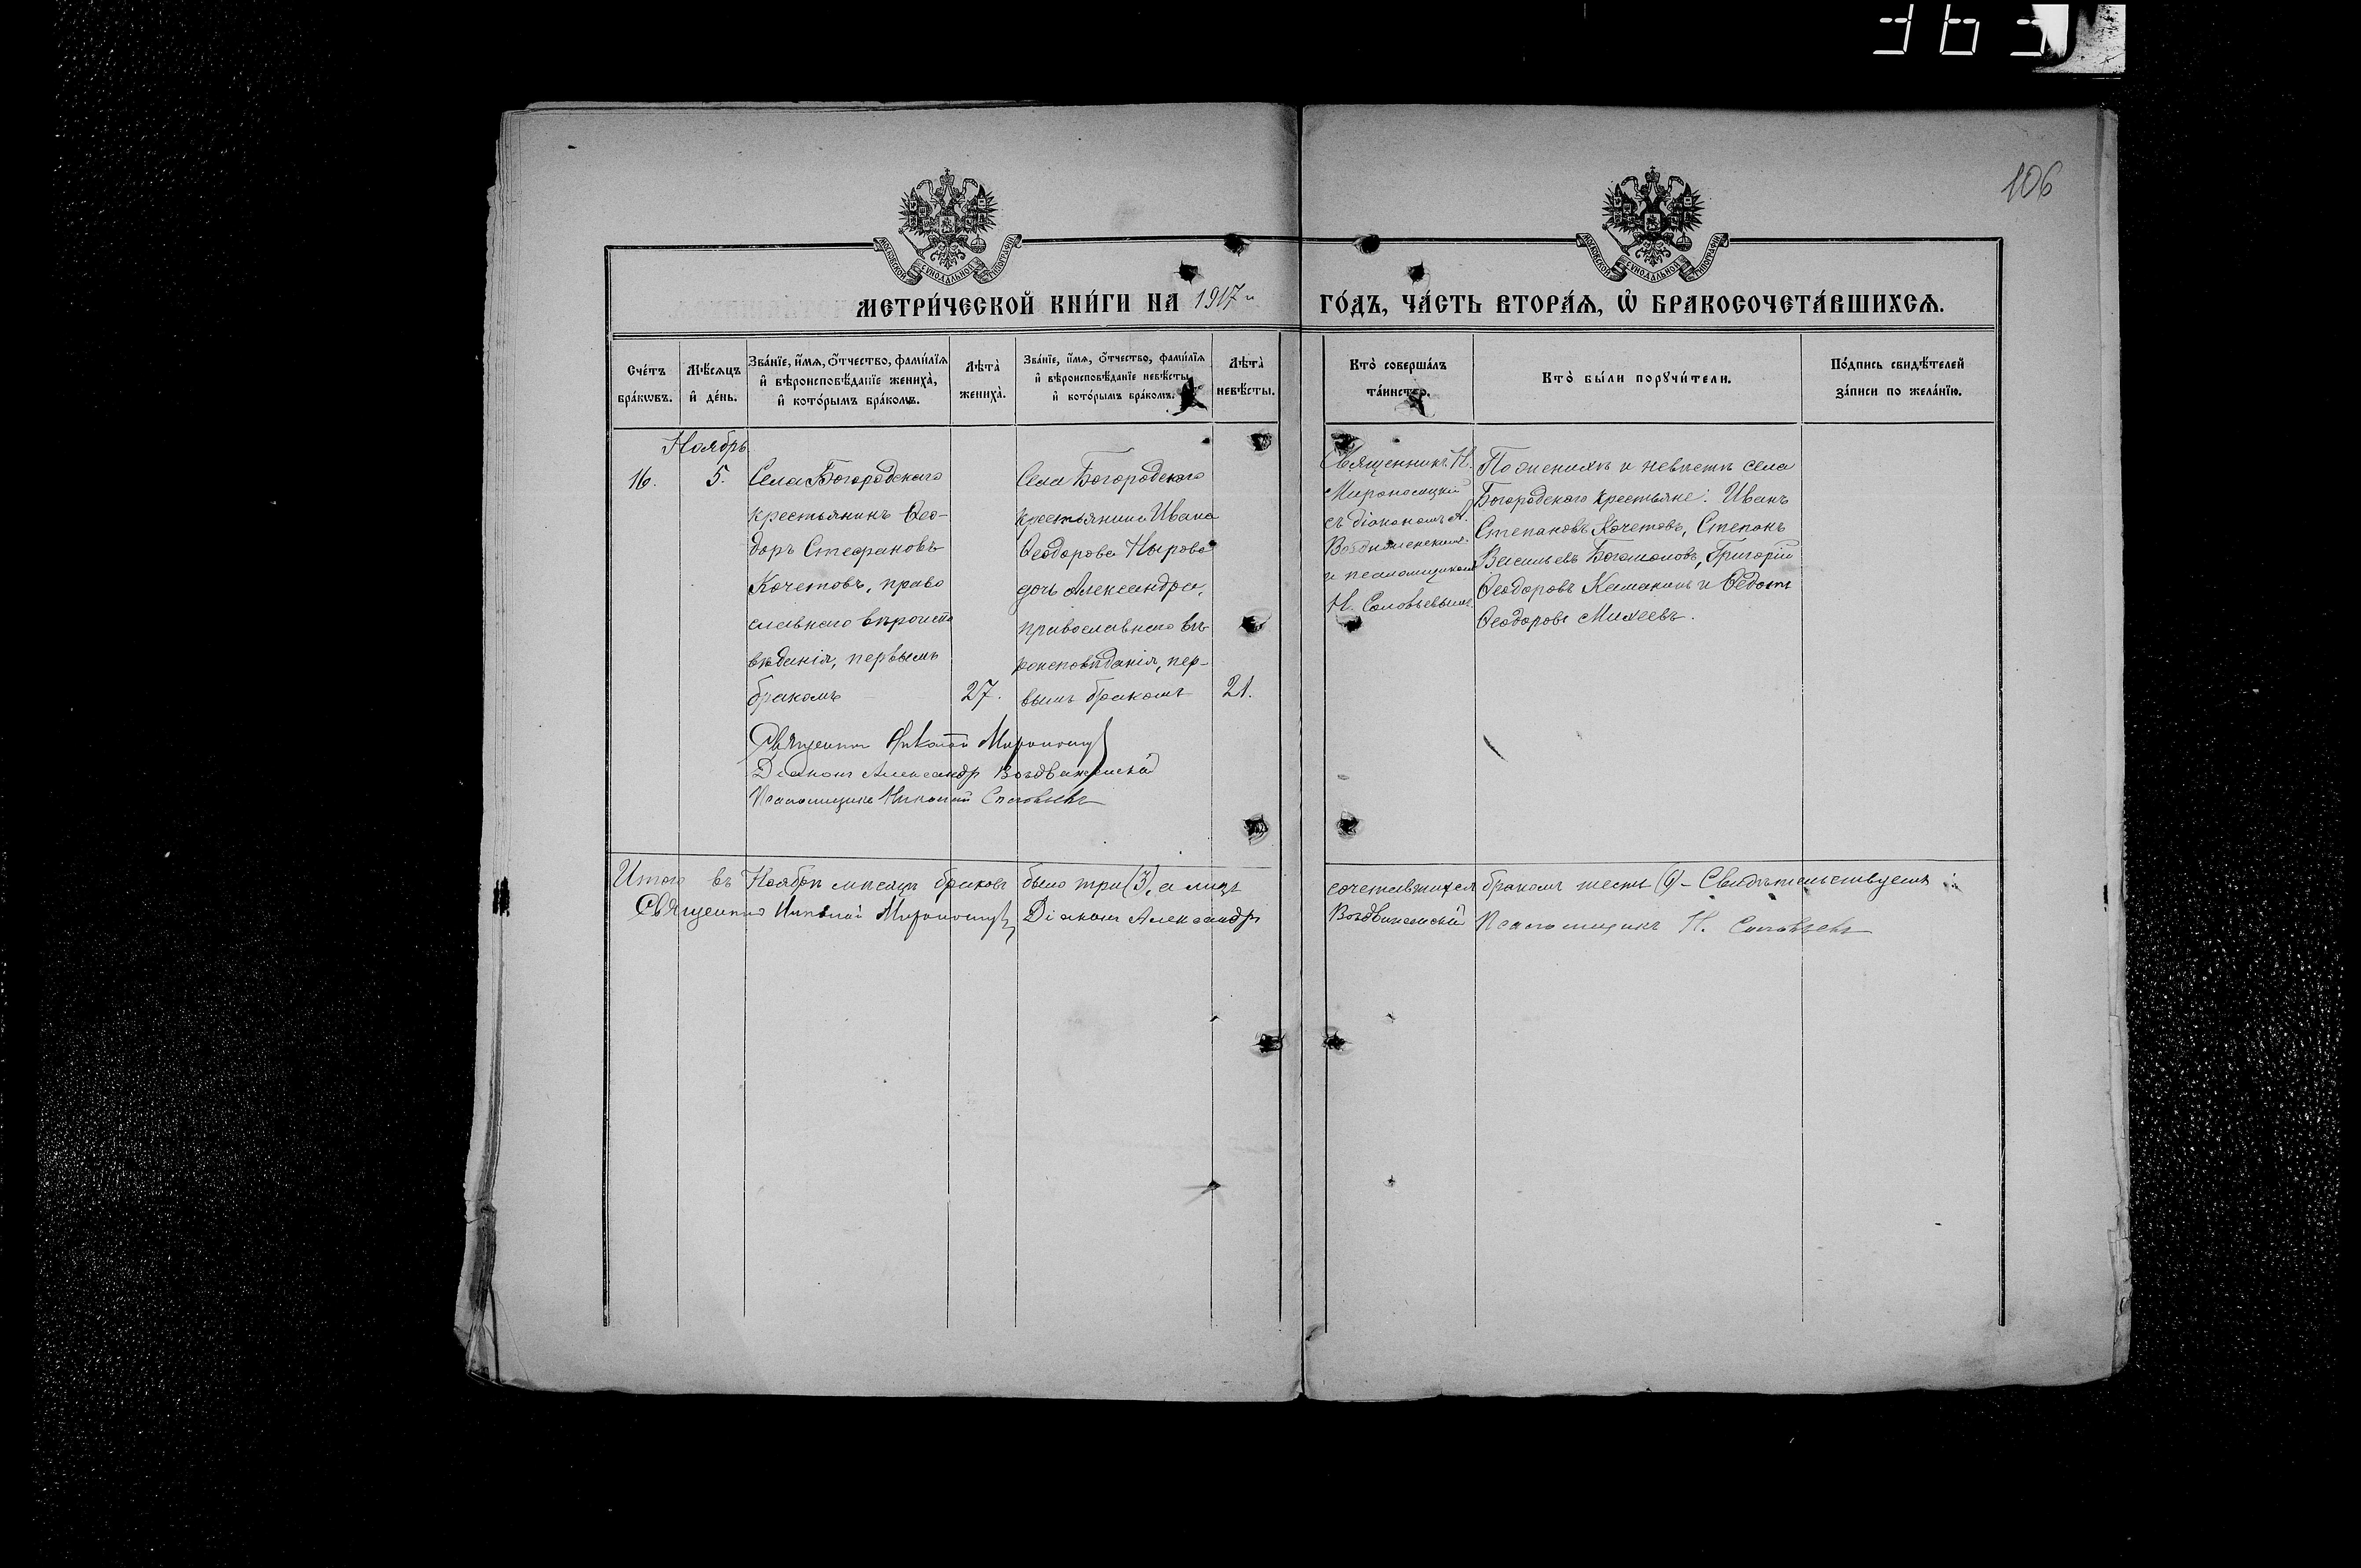 363
106
МОСКОВСКОЙ СѴНОДАЛЬНОЙ ТИПОГРАФІИ
МОСКОВСКОЙ СѴНОДАЛЬНОЙ ТИПОГРАФІИ
МЕТРИ́ЧЕСКОЙ КНИ́ГИ НА 1917 й ГО́ДЪ, ЧА́СТЬ ВТОРА́Ѧ, Ѽ БРАКОСОЧЕТА́ВШИХСѦ.
Сче́тъ
бра́кѡвъ.
Мѣ́сѧцъ
и҆ де́нь.
Зва́нїе, и҆́мѧ, ѻ҆́тчество, фами́лїѧ
и҆ вѣроисповѣ́данїе жениха̀,
и҆ кото́рымъ бра́комъ.
Лѣ́та̀
жениха̀.
Зва́нїе, и҆́мѧ, ѻ҆́тчество, фами́лїѧ
и҆ вѣроисповѣ́данїе невѣ́сты,
и҆ кото́рымъ бра́комъ.
Лѣ́та̀
невѣ́сты.
Кто̀ соверша́лъ
та́инство.
Кто̀ бы́ли порꙋчи́тели.
По́дпись свидѣ́телей
за́писи по жела́нїю.
Ноябрь
16.
5.
Села Богородскаго
крестьянинъ Ѳео-
доръ Стефановъ
Кочетовъ, право
славнаго вѣроиспо
вѣданія, первымъ
бракомъ
27.
Села Богородскаго
крестьянина Ивана
Ѳеодорова Нырова
дочь Александра,
православнаго вѣ-
роисповѣданія, пер-
вымъ бракомъ
21.
Священникъ Н.
Мироносицкій
съ діакономъ А.
Воздвиженскимъ
и псаломщикомъ
Н. Соловьевымъ.
По женихѣ и невѣстѣ села
Богородскаго крестьяне: Иванъ
Степановъ Кочетовъ, Степанъ
Васильевъ Богомоловъ, Григорій
Ѳеодоровъ и Ѳедотъ
Ѳеодоровъ Михеевъ.
Священникъ Николай Мироносицкій
Діаконъ Александръ Воздвиженскій
Псаломщикъ Николай Соловьевъ
Итого въ Ноябрѣ мѣсяцѣ браковъ было три (3), а лицъ сочетавшихся бракомъ шесть (6) – Свидѣтельствуемъ:
Священникъ Николай Мироносицкій Діаконъ Александръ Воздвиженскій Псаломщикъ Н. Соловьевъ